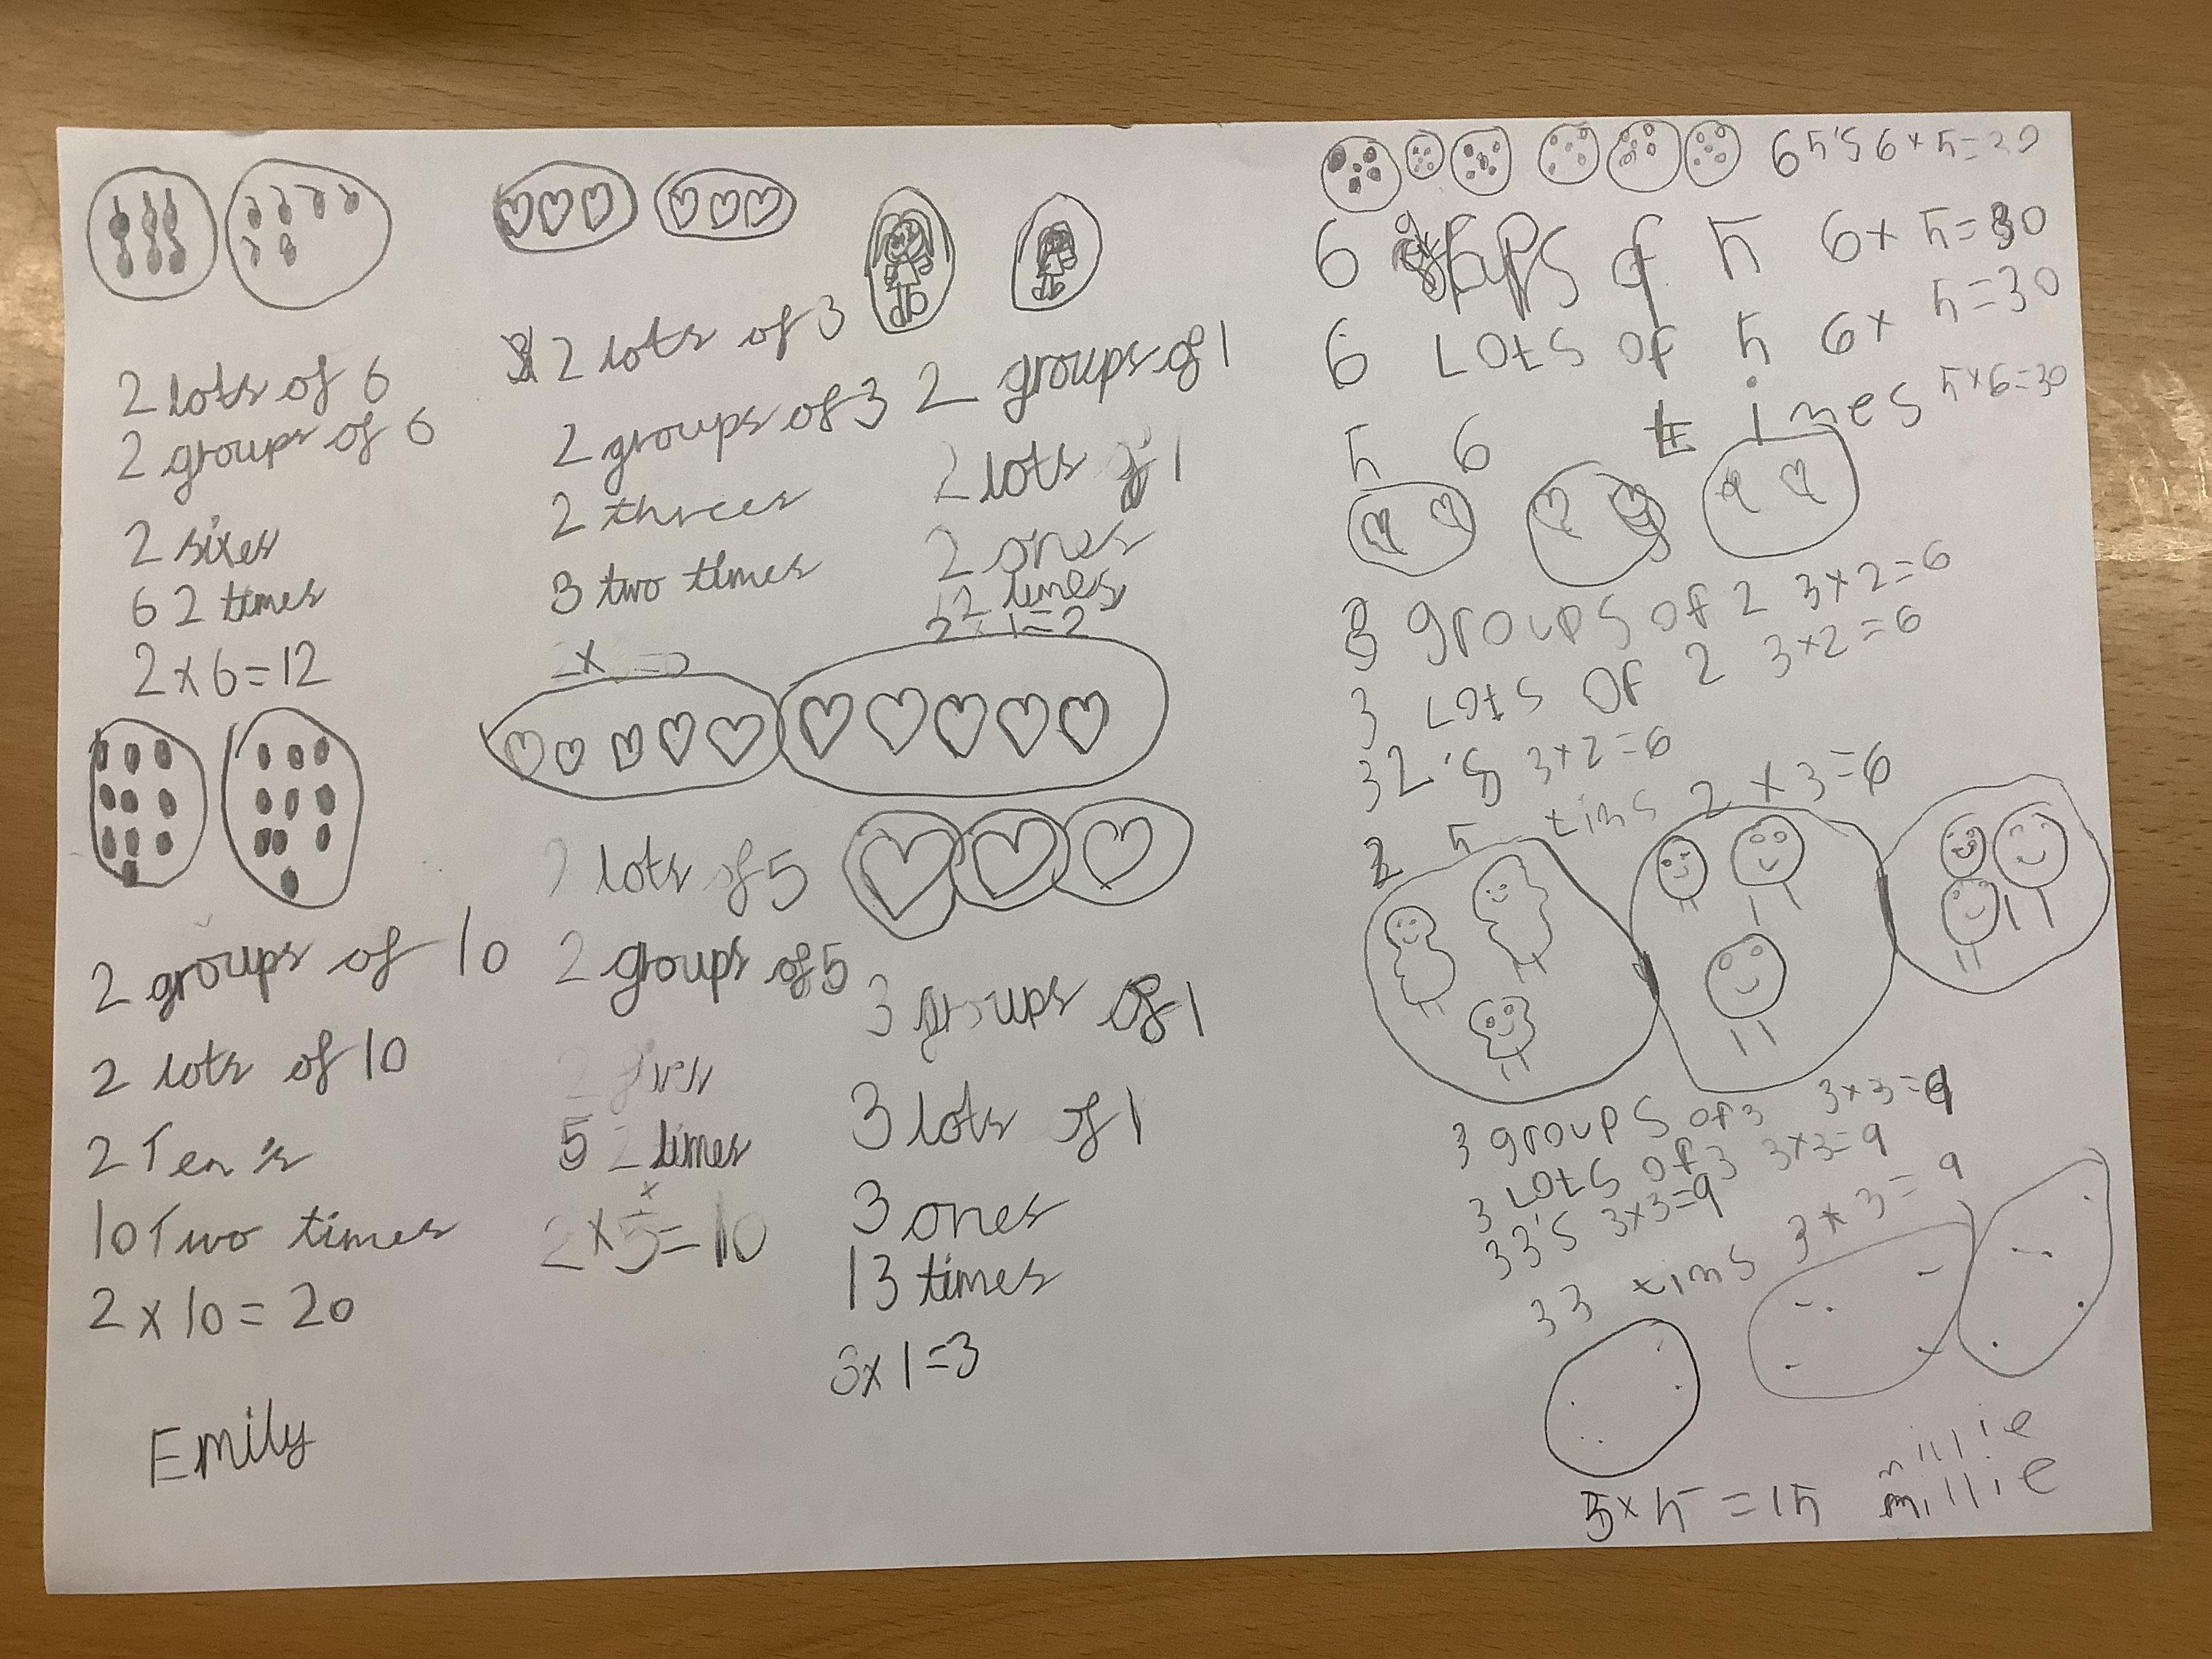 2 lots of 6
2 groups of 6
2 sixes
6 2 times
2 x 6 = 12
2 groups of 10
2 lots of 10
2 Ten's
10 Two times
2 x 10 = 20
Emily
2 lots of 3
2 groups of 3
2 threes
3 two times
2 x =
2 lots of 5
2 groups of 5
2 fives
5 2 times
2 x 5 = 10
2 groups of 1
2 lots of 1
2 ones
2 times
2 x 1 = 2
3 groups of 1
3 lots of 1
3 ones
1 3 times
3 x 1 = 3
6 5's 6 x 5 =
6 of 5 6 x 5 = 30
6 Lots of 5 6 x 5 = 30
5 6 times 5 x 6 = 30
3 groups of 2 3 x 2 = 6
3 Lots of 2 3 x 2 = 6
3 2's 3 x 2 = 6
tims 2 x 3 = 6
3 groups of 3 3 x 3 = 9
3 Lots of 3 3 x 3 = 9
3 3's 3 x 3 = 9
3 3 tims 3 x 3 = 9
x 5 = 15
millie
millie